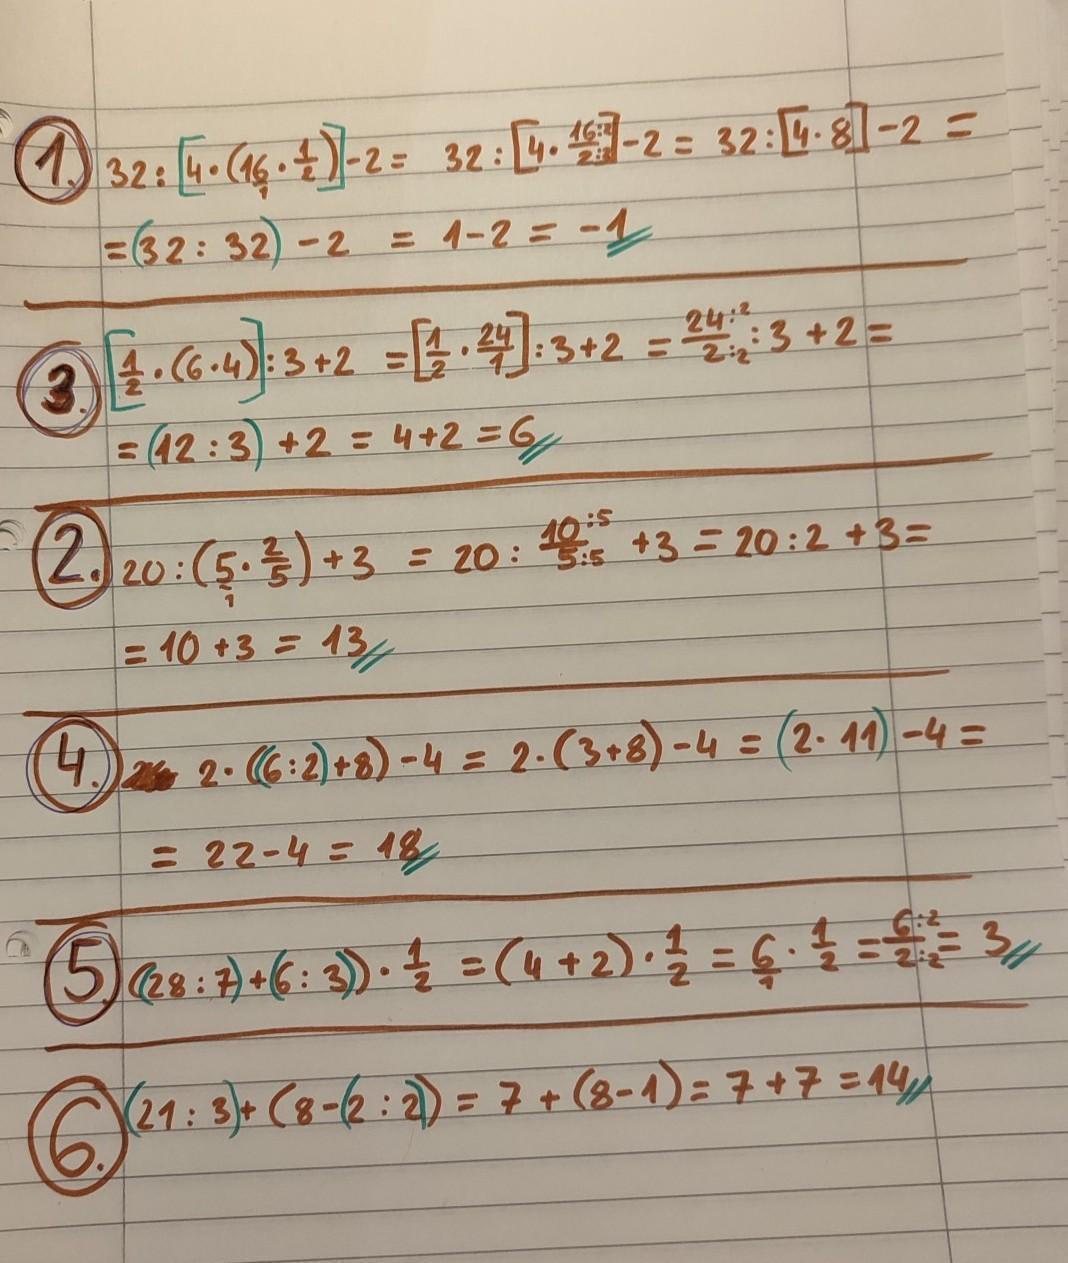 1. 32 : [4 · (16/1 · 1/2)] - 2 = 32 : [4 · 16:2/2:2] - 2 = 32 : [4 · 8] - 2 =
= (32 : 32) - 2 = 1 - 2 = -1
3. [1/2 · (6 · 4)] : 3 + 2 = [1/2 · 24/1] : 3 + 2 = 24:2/2:2 : 3 + 2 =
= (12 : 3) + 2 = 4 + 2 = 6
2. 20 : (5/1 · 2/5) + 3 = 20 : 10:5/5:5 + 3 = 20 : 2 + 3 =
= 10 + 3 = 13
4. 2 · ((6 : 2) + 8) - 4 = 2 · (3 + 8) - 4 = (2 · 11) - 4 =
= 22 - 4 = 18
5. ((28 : 7) + (6 : 3)) · 1/2 = (4 + 2) · 1/2 = 6/1 · 1/2 = 6:2/2:2 = 3
6. (21 : 3) + (8 - (2 : 2)) = 7 + (8 - 1) = 7 + 7 = 14